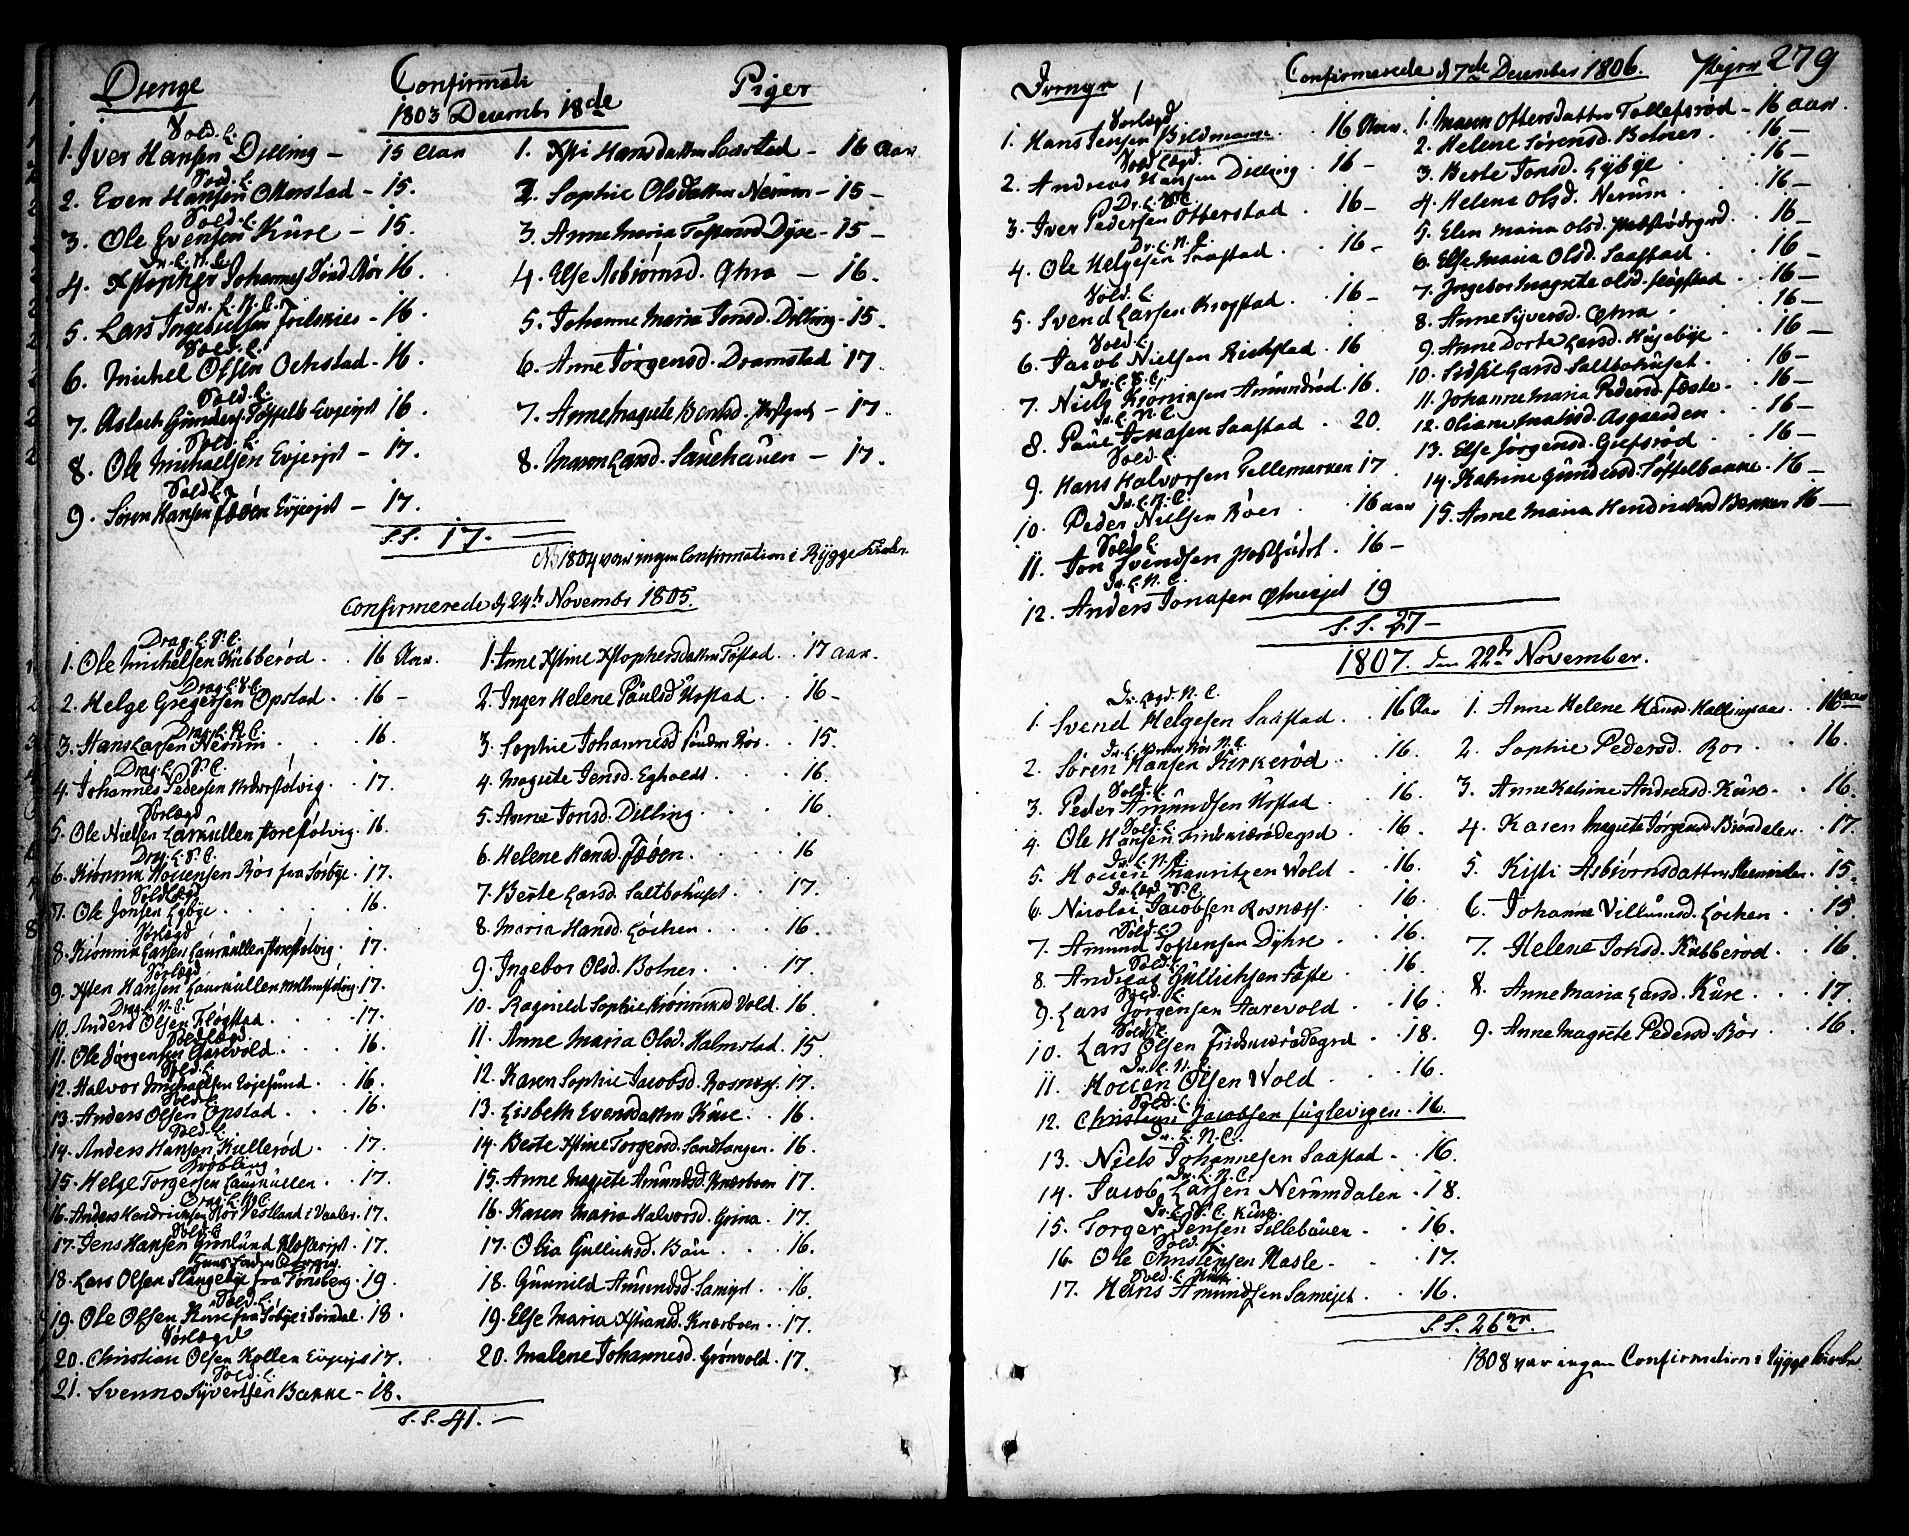 Drenge Confirmati Piger
1803 Decembr 18de
Sold. L.
1. Iver Hansen Dilling – 15 Aar
Sold. L.
2. Even Hansen Otterstad – 15.
Sold. L.
3. Ole Evensen Kure – 15.
Dr. L. N. C.
4. Xstopher Johannes Rør 16.
Dr. L. N. C.
5. Lars Ingebretsen – 16.
Sold. L.
6. Michel Olsen Ochstad – 16.
Sold. L.
7. Aslach Gunders. Evjerjst 16.
Sold. L.
8. Ole Michaelsen Evjerjst – 17.
Sold. L.
9. Søren Hansen Evjerjst – 17.
1. Xsti Hansdatter Saastad – 16 Aar
2. Sophie Olsdatter Nerum – 15 –
3. Anne Maria Dyre – 15 –
4. Else Asbiørnsd. – 16.
5. Johanne Maria Jonsd. Dilling – 15.
6. Anne Jørgensd. Dramstad 17
7. Anne Magrete – 17.
8. Maren Larsd. Sauehauen – 17.
S.S. 17.
1804 var ingen Confirmation i Rygge Kirke.
Confirmerede d 24de Novembr 1805.
Drag. L. S. C.
1. Ole Michelsen Kubberød . . 16 Aar.
Drag. L. S. C.
2. Helge Gregersen Opstad . . 16 –
Drag. L. N. C.
3. Hans Larsen Nerum . . . 16.
Drag. L. S. C.
4. Johannes Pedersen . . 17.
Sørlægd
5. Ole Nielsen Larkullen . 16.
Drag. L. S. C.
6. Houensen Rør fra Sørbye . 17.
Sold Lægd
7. Ole Jonsen Lybye . . . 16.
Sørlægd
8. Larsen Larkullen . 17.
Sørlægd
9. Xsten Hansen Larkullen . 17.
Drag. L. N. C.
10. Anders Olsen Fløgstad . . . 17.
Sold Lægd
11. Ole Jørgensen Aarevold . . . 16.
Sold. L.
12. Halvor Michaelsen Evjesund . . 16.
Sold. L.
13. Anders Olsen Opstad . . . 16.
Sold. L.
14. Anders Hansen Kullerød . . 17.
15. Helge Torgersen Larkullen . . 17.
Drag. L. N. C.
16. Anders Hendrichsen Rør Vestland i Vaaler . 17.
Sold. L.
17. Jens Hansen Grønlund . 17.
18. Lars Olsen Slangebye fra Tønsberg . 19.
Sold. L.
19. Ole Olsen Kure fra . 18.
Sørlægd
20. Christian Olsen Kollen Evjerjst 17.
Sold. L.
21. Svenno Syvertsen Bakke – 18.
1. Anne Xstine Xstophersdatter . 17 Aar.
2. Inger Helene Paulsd. . . 16 –
3. Sophie Johannesd. Søndre Rør . . 15.
4. Magrete Jensd. Egholdt . . . 16.
5. Anne Jonsd. Dilling . . . 16.
6. Helene Hansd. . . . 16
7. Berte Larsd. Saltbohuset . . 17.
8. Maria Hansd. Lôchen . . . 16.
9. Ingebor Olsd. Botner . . . 17.
10. Ragnild Sophie Vold . 16.
11. Anne Maria Olsd. Halmstad . 15.
12. Karen Sophie Jacobsd. Rosnæss . 17.
13. Lisbeth Evensdatter Kure . . 16.
14. Berte Xstine Torgersd. Sandtangen . 16.
15. Anne Magrete Amundsd. Knærboen 17.
16. Karen Maria Halvorsd. Grina . . 17.
17. Olia Gullichsd. Bau . . . 16.
18. Gunnild Amundsd. Samejst . . 16.
19. Else Maria Xstiansd. Knærboen . . 17.
20. Malene Johannesd. Grønvold . 17.
S.S. 41. –
Drenge Confirmerede d 7de December 1806. Piger 279
Sørlægd
1. Hans Jensen Bildmann . 16 Aar.
Sold Lægd.
2. Andreas Hansen Dilling . 16 –
Dr. L. S. C.
3. Iver Pedersen Otterstad . 16 –
Dr. L. N. C.
4. Ole Helgesen Saastad . . 16 –
Sold. L.
5. Svend Larsen Krogstad . . 16 –
Sold. L.
6. Jacob Nielsen Richstad . 16
Dr. L. S. C.
7. Niels Amundrød . 16.
Dr. L. N. C.
8. Paul Jonasen Saastad . 20.
Sold. L.
9. Hans Halvorsen Tellemarken 17.
Dr. L. N. C.
10. Peder Nielsen Röer . . 16 aar
Sold. L.
11. Jon Svendsen . 16 –
Dr. L. N. C.
12. Anders Jonasen 19
1. Maren Ottersdatter Tollefsrød – 16 aar.
2. Helene Sørensd. Botner . . 16 –
3. Berte Jonsd. Lybye . . 16 –
4. Helene Olsd. Nerum . . . 16 –
5. Elen Maria Olsd. . . 16 –
6. Else Maria Olsd. Saastad . . 16 –
7. Ingebor Magrete Olsd. Fløgstad . . 16 –
8. Anne Syversd. . . 16 –
9. Anne Dorte Larsd. Husebye . . 16 –
10. Larsd. Saltbohuset . . 16 –
11. Johanne Maria Pedersd. . 16 –
12. Oliane Matisd. Asgaarden . . 16 –
13. Else Jørgensd. Gipsrød . . 16 –
14. Katrine Gundersd. . 16 –
15. Anne Maria Hendrichsd. Bakken 16 –
S.S. 27 –
1807. den 22de November.
Dr. Lægd. N. C.
1. Svend Helgesen Saastad . . 16 Aar
2. Søren Hansen Kirkerød . . 16.
Sold. L.
3. Peder Amundsen . . 16.
Sold. L.
4. Ole Hansen . . 16.
Dr. L. N. C.
5. Houen Mauritzen Wold . . 16.
Dr. Lægd. S. C.
6. Nicolai Jacobsen Rosnæss . . 16.
Sold. L.
7. Amund Dyhre . . 16.
Sold. L.
8. Andreas Gullichsen . . 16.
Sold. L.
9. Lars Jørgensen Aarevold . . 16.
Sold. L.
10. Lars Olsen . 18.
Dr. L. N. C.
11. Houen Olsen Wold . . 16.
Sold. L.
12. Christian Jacobsen Fuglevigen . 16.
Dr. L. N. C.
13. Niels Johannesen Saastad . . 16.
Dr. L. N. C.
14. Jacob Larsen Nerumdalen . 18.
Dr. L. S. C. Kure
15. Torger Jensen Sillebauen . . 16.
Sold. L.
16. Ole Christensen Hasle . . 17.
Sold. L. Kure
17. Hans Amundsen Samejst . . 16.
1. Anne Helene Hansd. . 16 aar
2. Sophie Pedersd. Rør . . 16.
3. Anne Katrine Andreasd. Kure . . 16.
4. Karen Magrete Jørgensd. . 17.
5. Kisti Asbiørnsdatter . 15.
6. Johanne Villumsd. Lôchen . . 15.
7. Helene Jonsd. Kubberød . . 16.
8. Anne Maria Larsd. Kure . . . 17.
9. Anne Magrete Pedersd. Rör . . 16.
S.S. 26
1808 var ingen Confirmation i Rygge Kirke